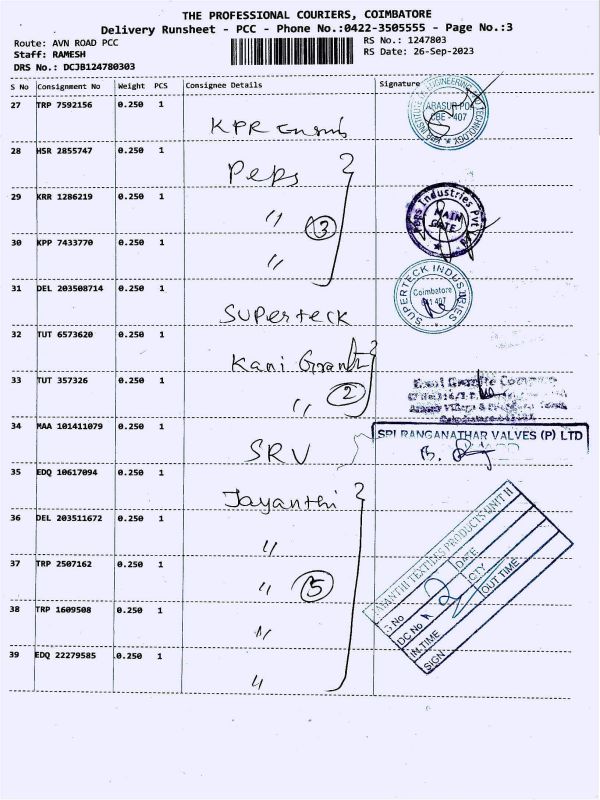 THE PROFESSIONAL COURIERS, COIMBATORE
Delivery Runsheet - PCC - Phone No.:0422-3505555 - Page No.:3
Route: AVN ROAD PCC
RS No.: 1247803
Staff: RAMESH
RS Date: 26-Sep-2023
DRS No.: DCJB124780303
S No Consignment No Weight PCS Consignee Details Signature
27 TRP 7592156 0.250 1
KPR
ARASUR POST
CBE 407
28 HSR 2855747 0.250 1
Peps
29 KRR 1286219 0.250 1
〃 3
Peps Industries Pvt Ltd
MAIN GATE
30 KPP 7433770 0.250 1
〃
31 DEL 203508714 0.250 1
Superteck
SUPERTECK INDUSTRIES
Coimbatore
641 407
32 TUT 6573620 0.250 1
Kani
33 TUT 357326 0.250 1
〃 2
34 MAA 101411079 0.250 1
SRV
SRI RANGANATHAR VALVES (P) LTD
35 EDQ 10617094 0.250 1
Jayanthi
36 DEL 203511672 0.250 1
〃
37 TRP 2507162 0.250 1
〃 5
38 TRP 1609508 0.250 1
〃
39 EDQ 22279585 0.250 1
〃
JAYANTHI TEXTILES PRODUCTS UNIT II
S No DATE
DC No QTY
IN TIME OUT TIME
SIGN